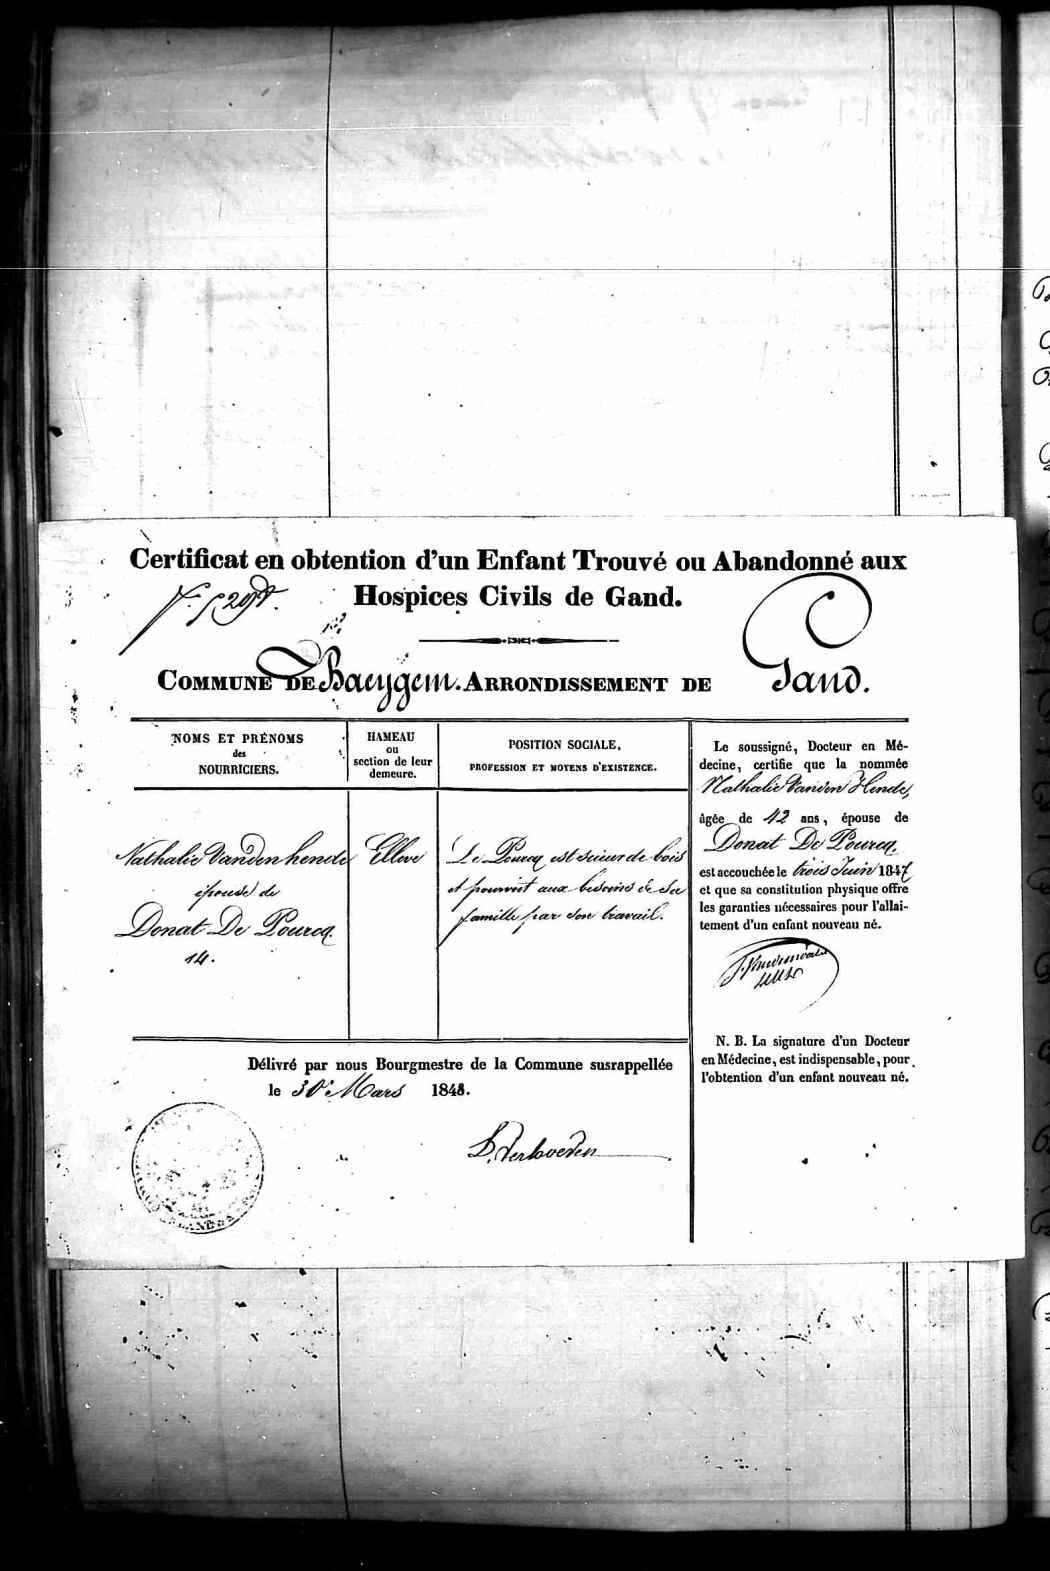 Certificat en obtention d'un Enfant Trouvé ou Abandonné aux
Hospices Civils de Gand.
COMMUNE DE Baeygem. ARRONDISSEMENT DE Gand.
NOMS ET PRÉNOMS
des
NOURRICIERS.
HAMEAU
ou
section de leur
demeure.
POSITION SOCIALE,
PROFESSION ET MOYENS D'EXISTENCE.
Nathalie Vanden hende
épouse de
Donat De Pourcq
14.
De Pourcq est scieur de bois
et pourvoit aux besoins de sa
famille par son travail.
Le soussigné, Docteur en Mé-
decine, certifie que la nommée
Nathalie Vanden Hende,
âgée de 42 ans, épouse de
Donat De Pourcq,
est accouchée le trois Juin 1847
et que sa constitution physique offre
les garanties nécessaires pour l'allai-
tement d'un enfant nouveau né.
N. B. La signature d'un Docteur
en Médecine, est indispensable, pour
l'obtention d'un enfant nouveau né.
Délivré par nous Bourgmestre de la Commune susrappellée
le 30 Mars 1848.